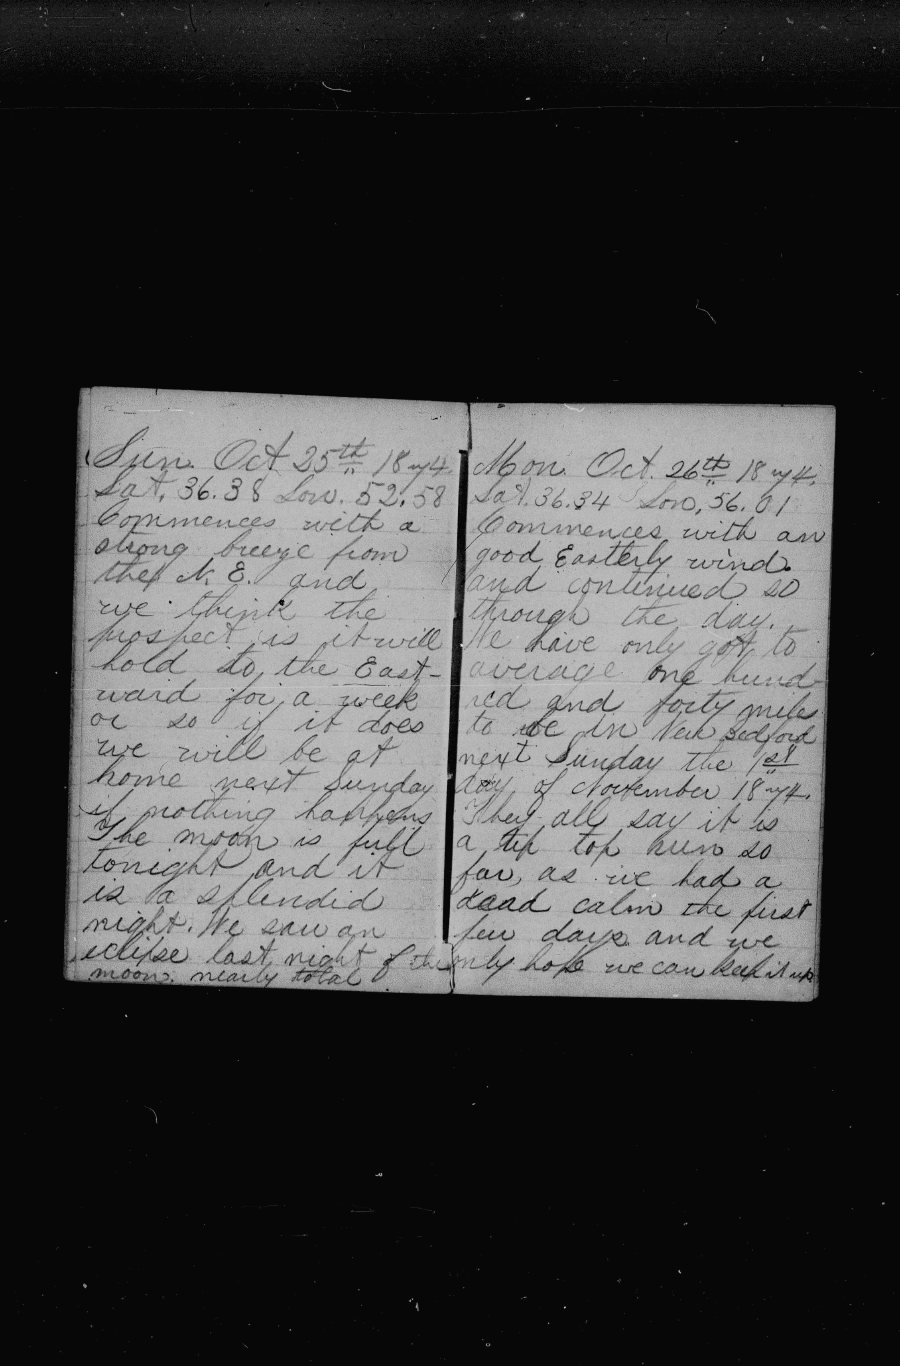 Sun. Oct 25th 1874
Lat, 36.38 Lon. 52.58
Commences with a
strong breeze from
the N. E. and
we think the
prospect is it will
hold to the East-
ward for a week
or so if it does
we will be at
home next Sunday
if nothing happens
The moon is full
tonight and it
is a splendid
night. We saw an
eclipse last night of the
moon. nearly total
Mon. Oct. 26th 1874.
Lat. 36.34 Lon, 56.01
Commences with an
good Easterly wind.
and continued so
through the day.
We have only got to
average one hund
red and forty miles
to be in New Bedford
next Sunday the 1st
day of November 1874.
They all say it is
a tip top run so
far, as we had a
dead calm the first
few days and we
only hope we can keep it up